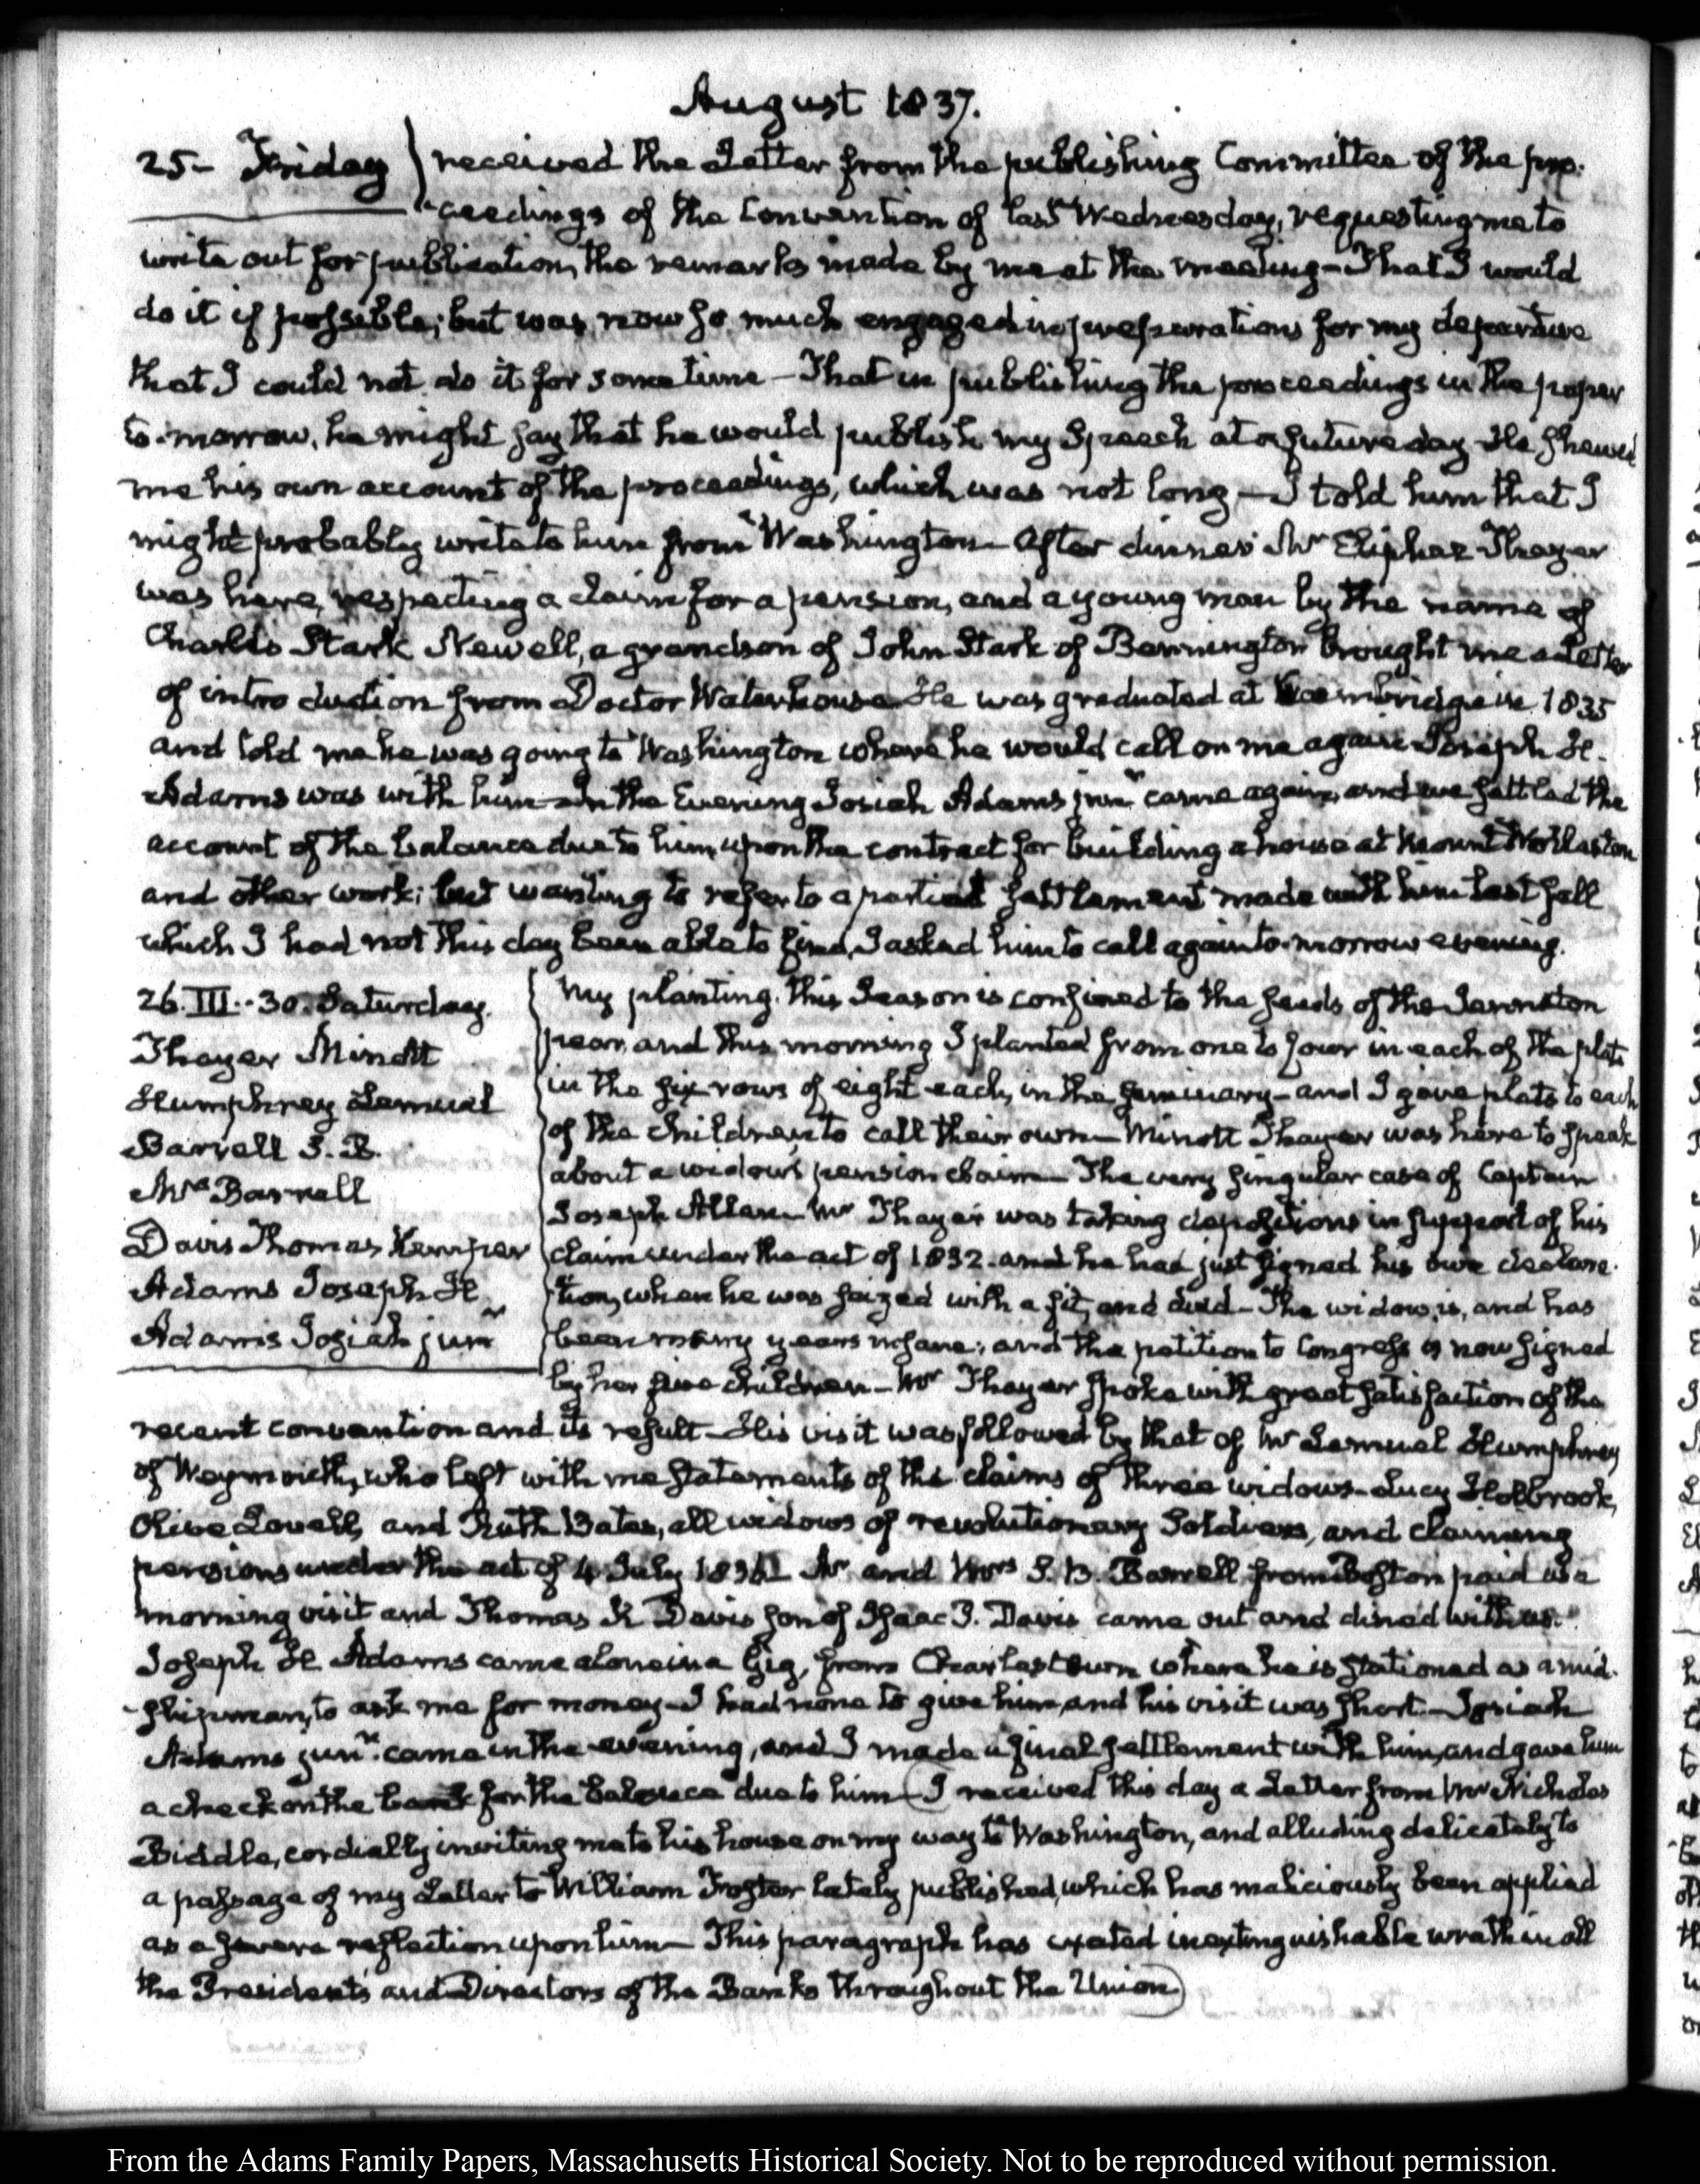 August 1837.
25- Friday
received the Letter from the publishing Committee of the pro-
ceedings of the Convention of last Wednesday, requesting me to
write out for publication, the remarks made by me at the meeting- That I would
do it if possible; but was now so much engaged in preparations for my departure
that I could not do it for some time- That in publishing the proceedings in the paper
to-morrow, he might say that he would publish my Speech at a future day He shewed
me his own account of the proceedings, which was not long- I told him that I
might probably write to him from Washington- After dinner Mr Eliphaz Thayer
was here, respecting a claim for a pension, and a young man by the name of
Charles Stark Newell, a grandson of John Stark of Bennington brought me a Letter
of introduction from Doctor Waterhouse He was graduated at Cambridge in 1835
and told me he was going to Washington where he would call on me again Joseph H.
Adams was with him- In the Evening Josiah Adams junr came again, and we settled the
account of the balance due to him, upon the contract for building a house at Mount Wollaston
and other work; but wanting to refer to a partial settlement made with him last fall
which I had not this day been able to find, I asked him to call again to-morrow evening.
26. III..30. Saturday.
Thayer Minott
Humphrey Lemuel
Barrell S. B.
Mrs Barrell
Davis Thomas Kemper
Adams Joseph H.
Adams Josiah junr
My planting this Season is confined to the seeds of the
pear, and this morning I planted from one to four in each of the plats
in the six rows of eight each, in the seminary- and I gave plats to each
of the children, to call their own- Minott Thayer was here to speak
about a widow's pension claim- The very singular case of Captain
Joseph Allen- Mr Thayer was taking depositions in support of his
claim under the act of 1832. and he had just signed his own declara-
tion, when he was seized with a fit, and died- The widow, is, and has
been many years insane; and the petition to Congress is now signed
by her five children- Mr Thayer spoke with great satisfaction of the
recent convention and its result- His visit was followed by that of Mr Lemuel Humphrey
of Weymouth, who left with me statements of the claims of three widows- Lucy Holbrook,
Olive Lovell, and Ruth Bates, all widows of revolutionary Soldiers, and claiming
pensions under the act of 4 July 1836 Mr and Mrs S. B. Barrell from Boston paid us a
morning visit and Thomas K Davis son of Isaac P. Davis came out and dined with us.
Joseph H Adams came alone in a Gig, from Charlestown where he is stationed as a mid-
shipman, to ask me for money- I had none to give him, and his visit was short- Josiah
Adams junr. came in the evening, and I made a final settlement with him, and gave him
a check on the bank for the balance due to him- (I received this day a Letter from Mr Nicholas
Biddle, cordially inviting me to his house on my way to Washington, and alluding delicately to
a passage of my Letter to William Foster lately published, which has maliciously been applied
as a severe reflection upon him- This paragraph has excited inextinguishable wrath in all
the Presidents and Directors of the Banks throughout the Union)
From the Adams Family Papers, Massachusetts Historical Society. Not to be reproduced without permission.